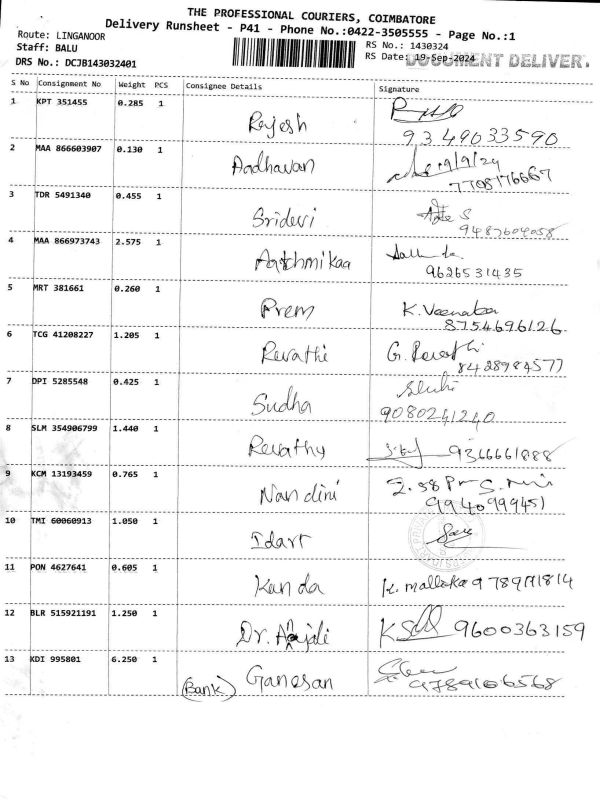 THE PROFESSIONAL COURIERS, COIMBATORE
Delivery Runsheet - P41 - Phone No.:0422-3505555 - Page No.:1
Route: LINGANOOR
Staff: BALU
DRS No.: DCJB143032401
RS No.: 1430324
RS Date: 19-Sep-2024
DOCUMENT DELIVERY
S No Consignment No Weight PCS Consignee Details Signature
1 KPT 351455 0.285 1 Rajesh
9349033590
2 MAA 866603907 0.130 1 Aadhavan 19/9/24
7708176667
3 TDR 5491340 0.455 1 Sridevi
9487604058
4 MAA 866973743 2.575 1 Aathmikaa
9626531435
5 MRT 381661 0.260 1 Prem K. Veenaba
8754696126
6 TCG 41208227 1.205 1 Revathi G. Revathi
8428984577
7 DPI 5285548 0.425 1 Sudha
9080241240
8 SLM 354906799 1.440 1 Revathy 9366661888
9 KCM 13193459 0.765 1 Nandini
9940999451
10 TMI 60060913 1.050 1 Idart
11 PON 4627641 0.605 1 Kanda K. mallika 9789171814
12 BLR 515921191 1.250 1 Dr. Anjali 9600363159
13 KDI 995801 6.250 1 (Bank) Ganesan
9789106568